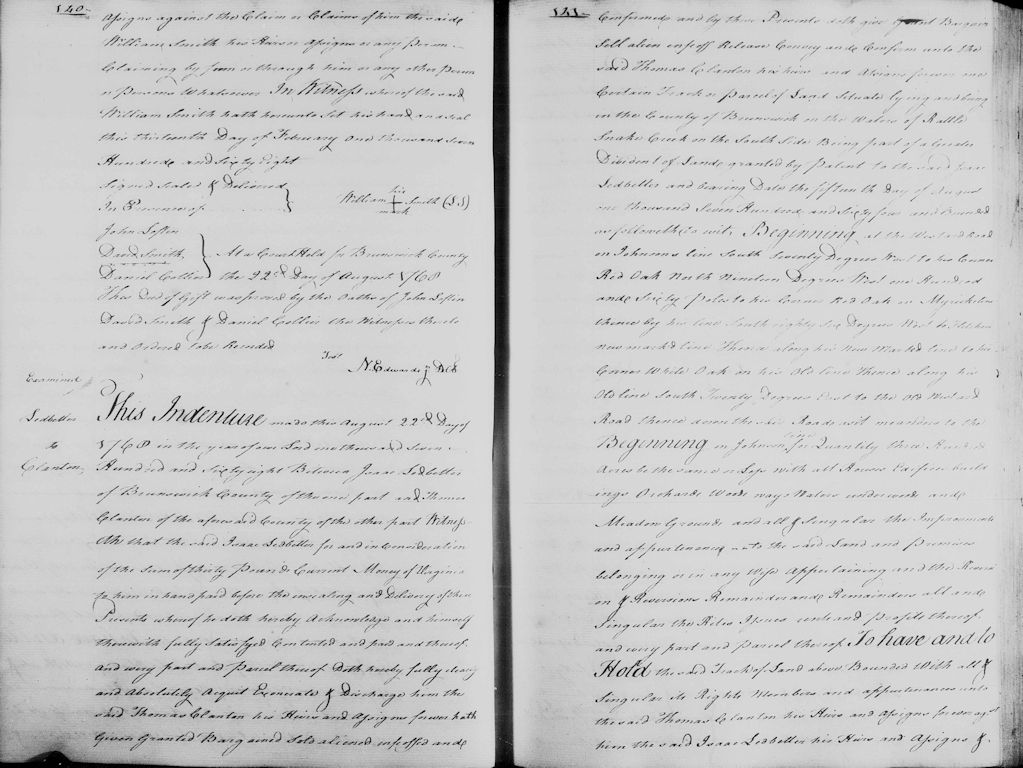 140
Assigns against the Claim or Claims of him the said
William Smith his Heirs Assigns or any Person
Claiming by from or through him or any other Person
or Persons Whatsoever In Witness whereof the said
William Smith hath hereunto Set his hand and seal
this thirteenth Day of February One thousand seven
Hundred and Sixty Eight
Signed Sealed & Delivered
In Presence of
William his + mark Smith (LS)
John
David Smith
Daniel Collier
At a Court Held for Brunswick County
the 22d Day of August 1768
This Deed of Gift was proved by the Oaths of John
David Smith & Daniel Collier the Witnesses thereto
and Ordered to be Recorded
Test
N. Edwards jr DCk
Examined
Ledbetter
to
Clanton
This Indenture made this August 22d Day of
1768 in the year of our Lord one thousand Seven
Hundred and Sixty eight Between Isaac Ledbetter
of Brunswick County of the one part and Thomas
Clanton of the aforesaid County of the other part Witness
eth that the said Isaac Ledbetter for and in Consideration
of the Sum of thirty Pounds Current Money of Virginia
to him in hand paid before the ensealing and Delivery of these
Presents whereof he doth hereby Acknowledge and himself
therewith fully Satisfyed Contented and paid and thereof
and every part and Parcel thereof Doth hereby fully clearly
and Absolutely Acquit Exonerate & Discharge him the
said Thomas Clanton his Heirs and Assigns forever hath
Given Granted Bargained Sold aliened enfeoffed and
141
Confirmed and by these Presents doth give grant Bargain
Sell alien enfeoff Release Convey and Confirm unto the
said Thomas Clanton his heirs and Assigns forever one
Certain Track or Parcel of Land Situate lying and being
in the County of Brunswick on the Waters of Rattle
Snake Creek on the South Side Being part of a Greater
Divident of Land granted by Patent to the said
Ledbetter and bearing Date the fifteenth Day of August
one thousand Seven Hundred and Sixty four and Bounded
as followeth to wit, Beginning at the Westward Road
in Johnsons line South Seventy Degrees West to his Corner
Red Oak North Nineteen Degrees West one Hundred
and Sixty Poles to his Corner Red Oak on
thence by his line South eighty Six Degrees West to
new mark'd line Thence along his New Marked line to his
Corner White Oak on his Old line Thence along his
Old line South Twenty Degrees East to the Old Westward
Road thence down the said Road as it meanders to the
Beginning in Johnsons line for Quantity three Hundred
Acres be the same or Less with all Houses Edifices build
ings Orchards Woods ways Waters underwoods and
Meadow Grounds and all & Singular the Improvements
and appurtenances to the said Land and Premises
belonging or in any Wise Appertaining and the Reversi
on & Reversions Remainder and Remainders all and
Singular the Rites Issues rents and Profits thereof
and every part and Parcel thereof To have and to
Hold the said Track of Land above Bounded With all &
Singular its Rights Members and appurtenances unto
the said Thomas Clanton his Heirs and Assigns forever agt
him the said Isaac Ledbetter his Heirs and Assigns &